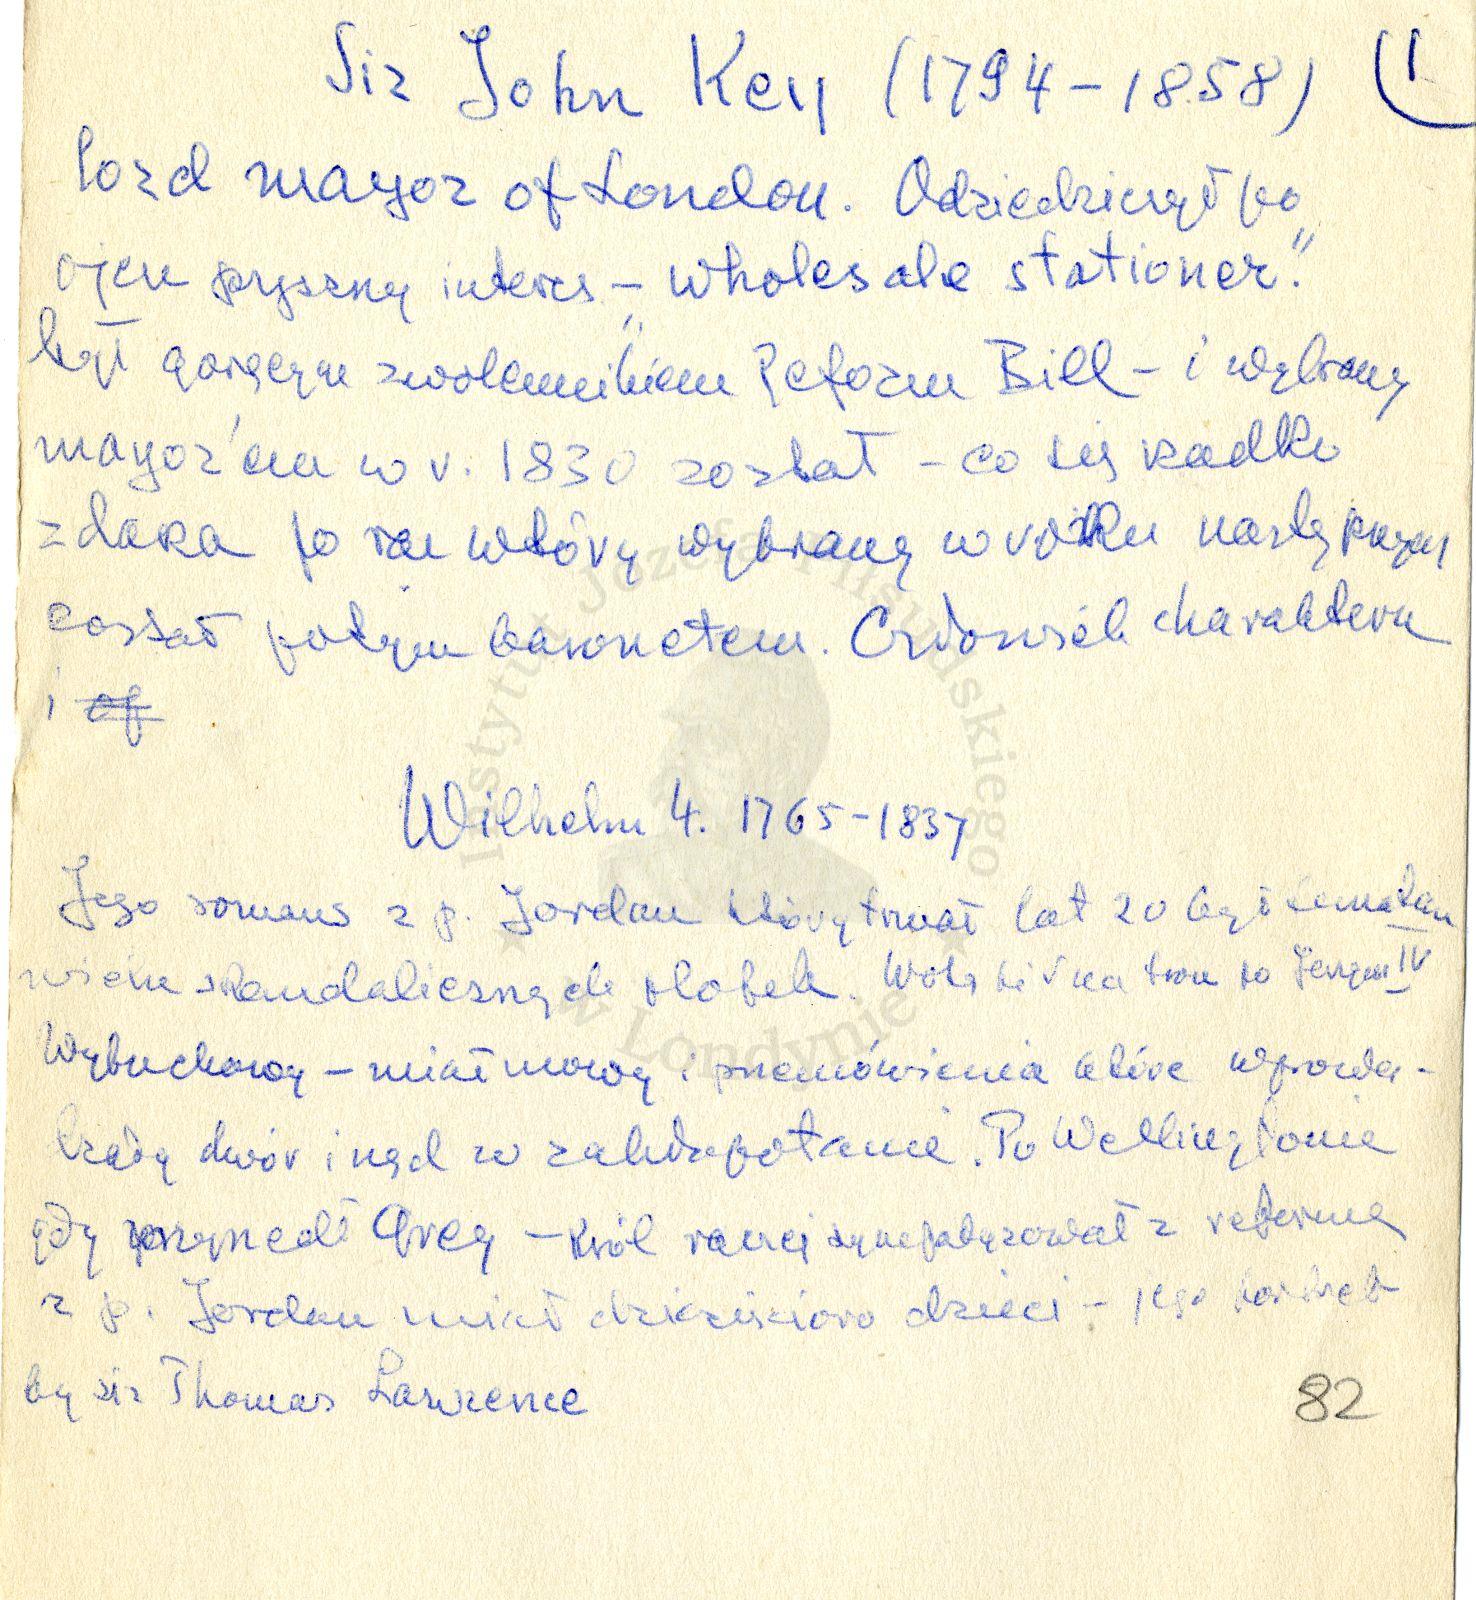 Sir John Key (1794-1858) (1
lord mayor of London. Odziedziczył po
ojcu pyszny interes – "wholesale stationer".
był gorącym zwolennikiem Reform Bill – i wybrany
mayor'em w r. 1830 został – co się rzadko
zdarza po raz wtóry wybrany w roku następnym
został potym baronetem. Człowiek charakteru
i of
Wilhelm 4. 1765-1837
Jego romans z p. Jordan który trwał lat 20 był tematem
wielu skandalicznych plotek. Wstąpił na tron po Jerzym IV
Wybuchowy – miał mowy i przemówienia które wprowa-
dzały dwór i rząd w zakłopotanie. Po Wellingtonie
gdy przyszedł Grey – król raczej sympatyzował z reformą
z p. Jordan miał dziesięcioro dzieci – jego portret
by sir Thomas Lawrence
82
Instytut Józefa Piłsudskiego
w Londynie